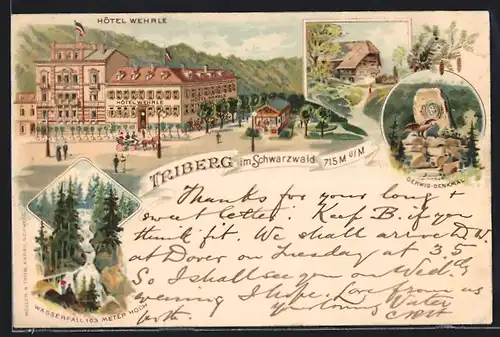 HÔTEL WEHRLE
HÔTEL WEHRLE
TRIBERG im Schwarzwald 715 M ü/M
GERWIG-DENKMAL
WASSERFALL 163 METER HOCH
Thanks for your long &
sweet letter. Keep B. if you
think fit. We shall arrive D.V.
at Dover on Tuesday at 3.5
So I shall see you on Wed:
evening I hope. Love from us
both. Yr loving